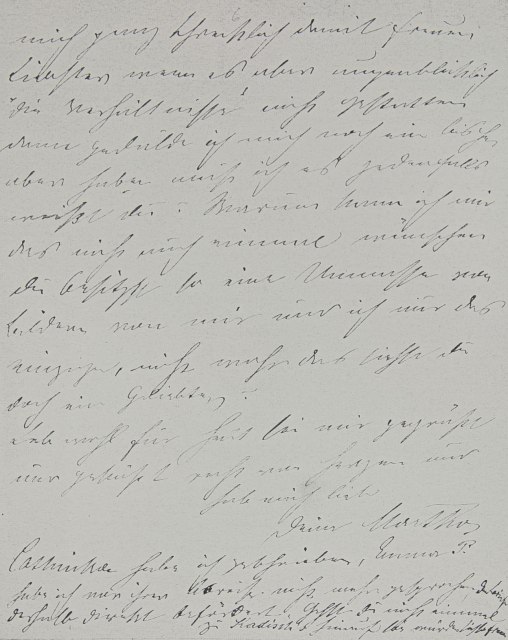 mich ganz schrecklich damit freuen
Liebster wenn es aber augenblicklich
die Verhältnisse nicht gestatten
dann gedulde ich mich noch ein bischen
aber haben muß ich es jedenfalls
weißt du! Warum kann ich mir
das nicht auch einmal wünschen
du besitzst so eine Unmasse von
Bildern von mir und ich nur das
einzige, nicht wahr das siehst du
doch ein Geliebter,!
Leb wohl für heut sei mir gegrüßt
und geküßt recht von Herzen und
hab mich lieb
Deine Martha
habe ich geschrieben, Emma P.
habe ich vor ihrer Abreise nicht mehr gesprochen
deshalb direkt befördert. Gehst du nicht einmal
zu